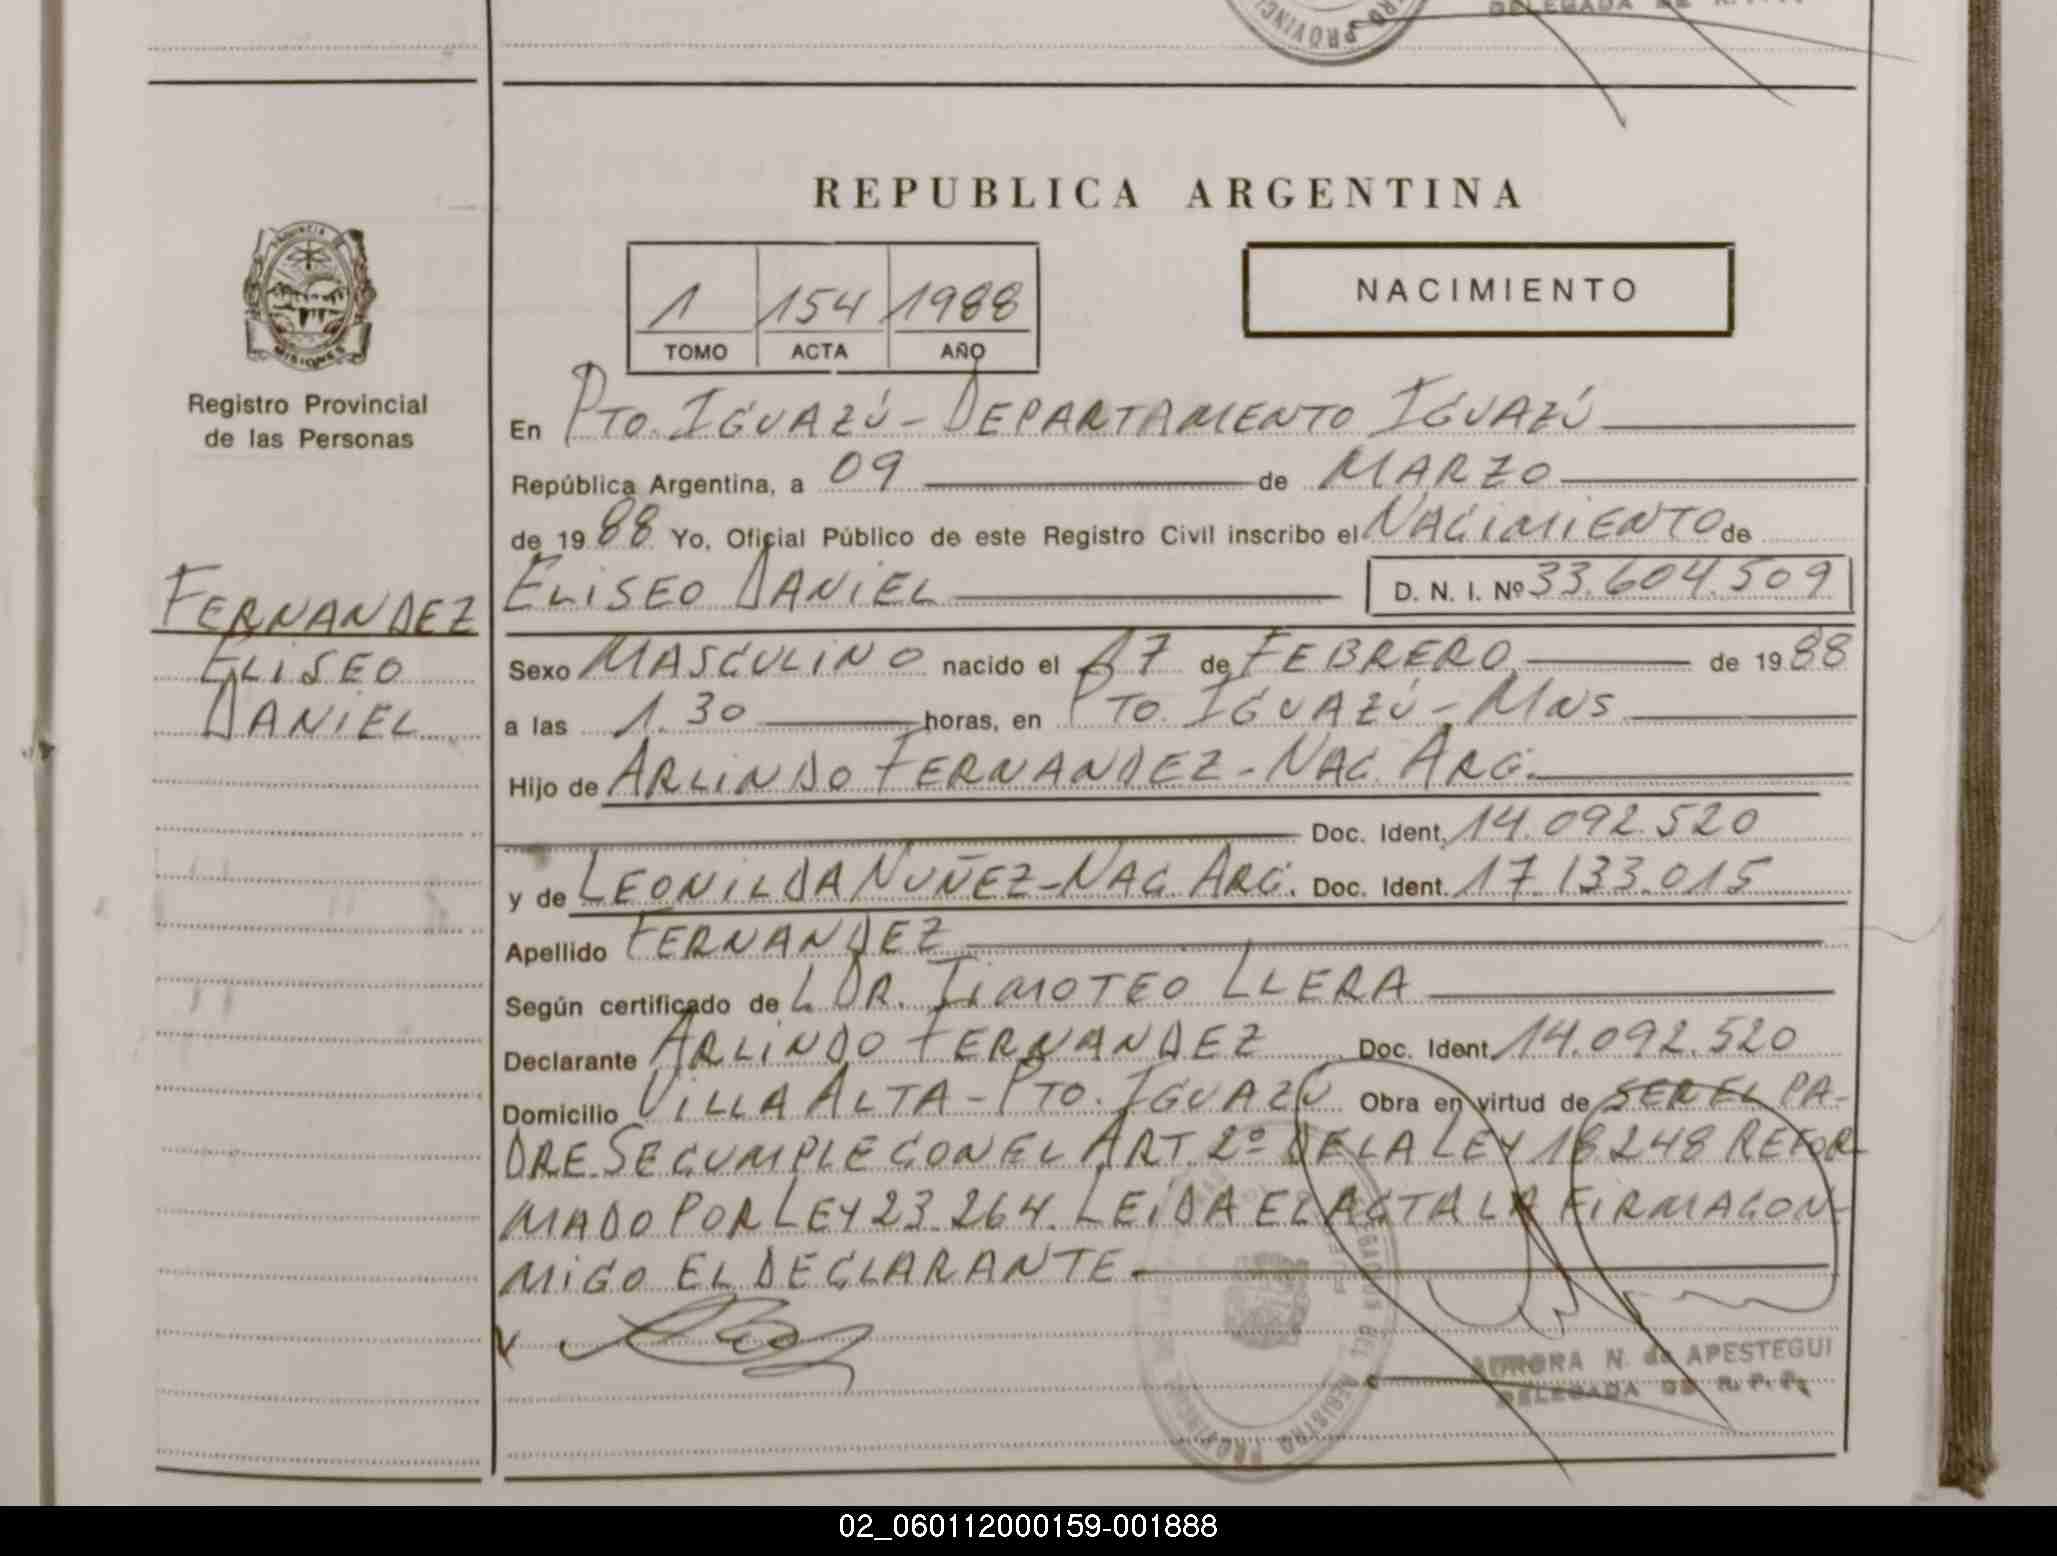 DELEGADA DE R.P.P.
REPUBLICA ARGENTINA
PROVINCIA DE
MISIONES
1 154 1988
TOMO ACTA AÑO
NACIMIENTO
Registro Provincial
de las Personas
En PTO. IGUAZÚ - DEPARTAMENTO IGUAZÚ
República Argentina, a 09 de MARZO
de 1988 Yo, Oficial Público de este Registro Civil inscribo el NACIMIENTO de
ELISEO DANIEL D. N. I. Nº 33.604.509
FERNANDEZ
ELISEO
DANIEL
Sexo MASCULINO nacido el 27 de FEBRERO de 1988
a las 1.30 horas, en PTO. IGUAZÚ - MNS
Hijo de ARLINDO FERNANDEZ - NAC. ARG.
Doc. Ident. 14.092.520
y de LEONILDA NUÑEZ - NAC ARG. Doc. Ident. 17.133.015
Apellido FERNANDEZ
Según certificado de L DR. TIMOTEO LLERA
Declarante ARLINDO FERNANDEZ Doc. Ident. 14.092.520
Domicilio VILLA ALTA - PTO. IGUAZÚ Obra en virtud de SER EL PA-
DRE. SE CUMPLE CON EL ART. 2º DE LA LEY 18248 REFOR
MADO POR LEY 23.264. LEIDA EL ACTA LA FIRMA CON-
MIGO EL DECLARANTE
AURORA N. de APESTEGUI
DELEGADA DE R. P. P.
02_060112000159-001888